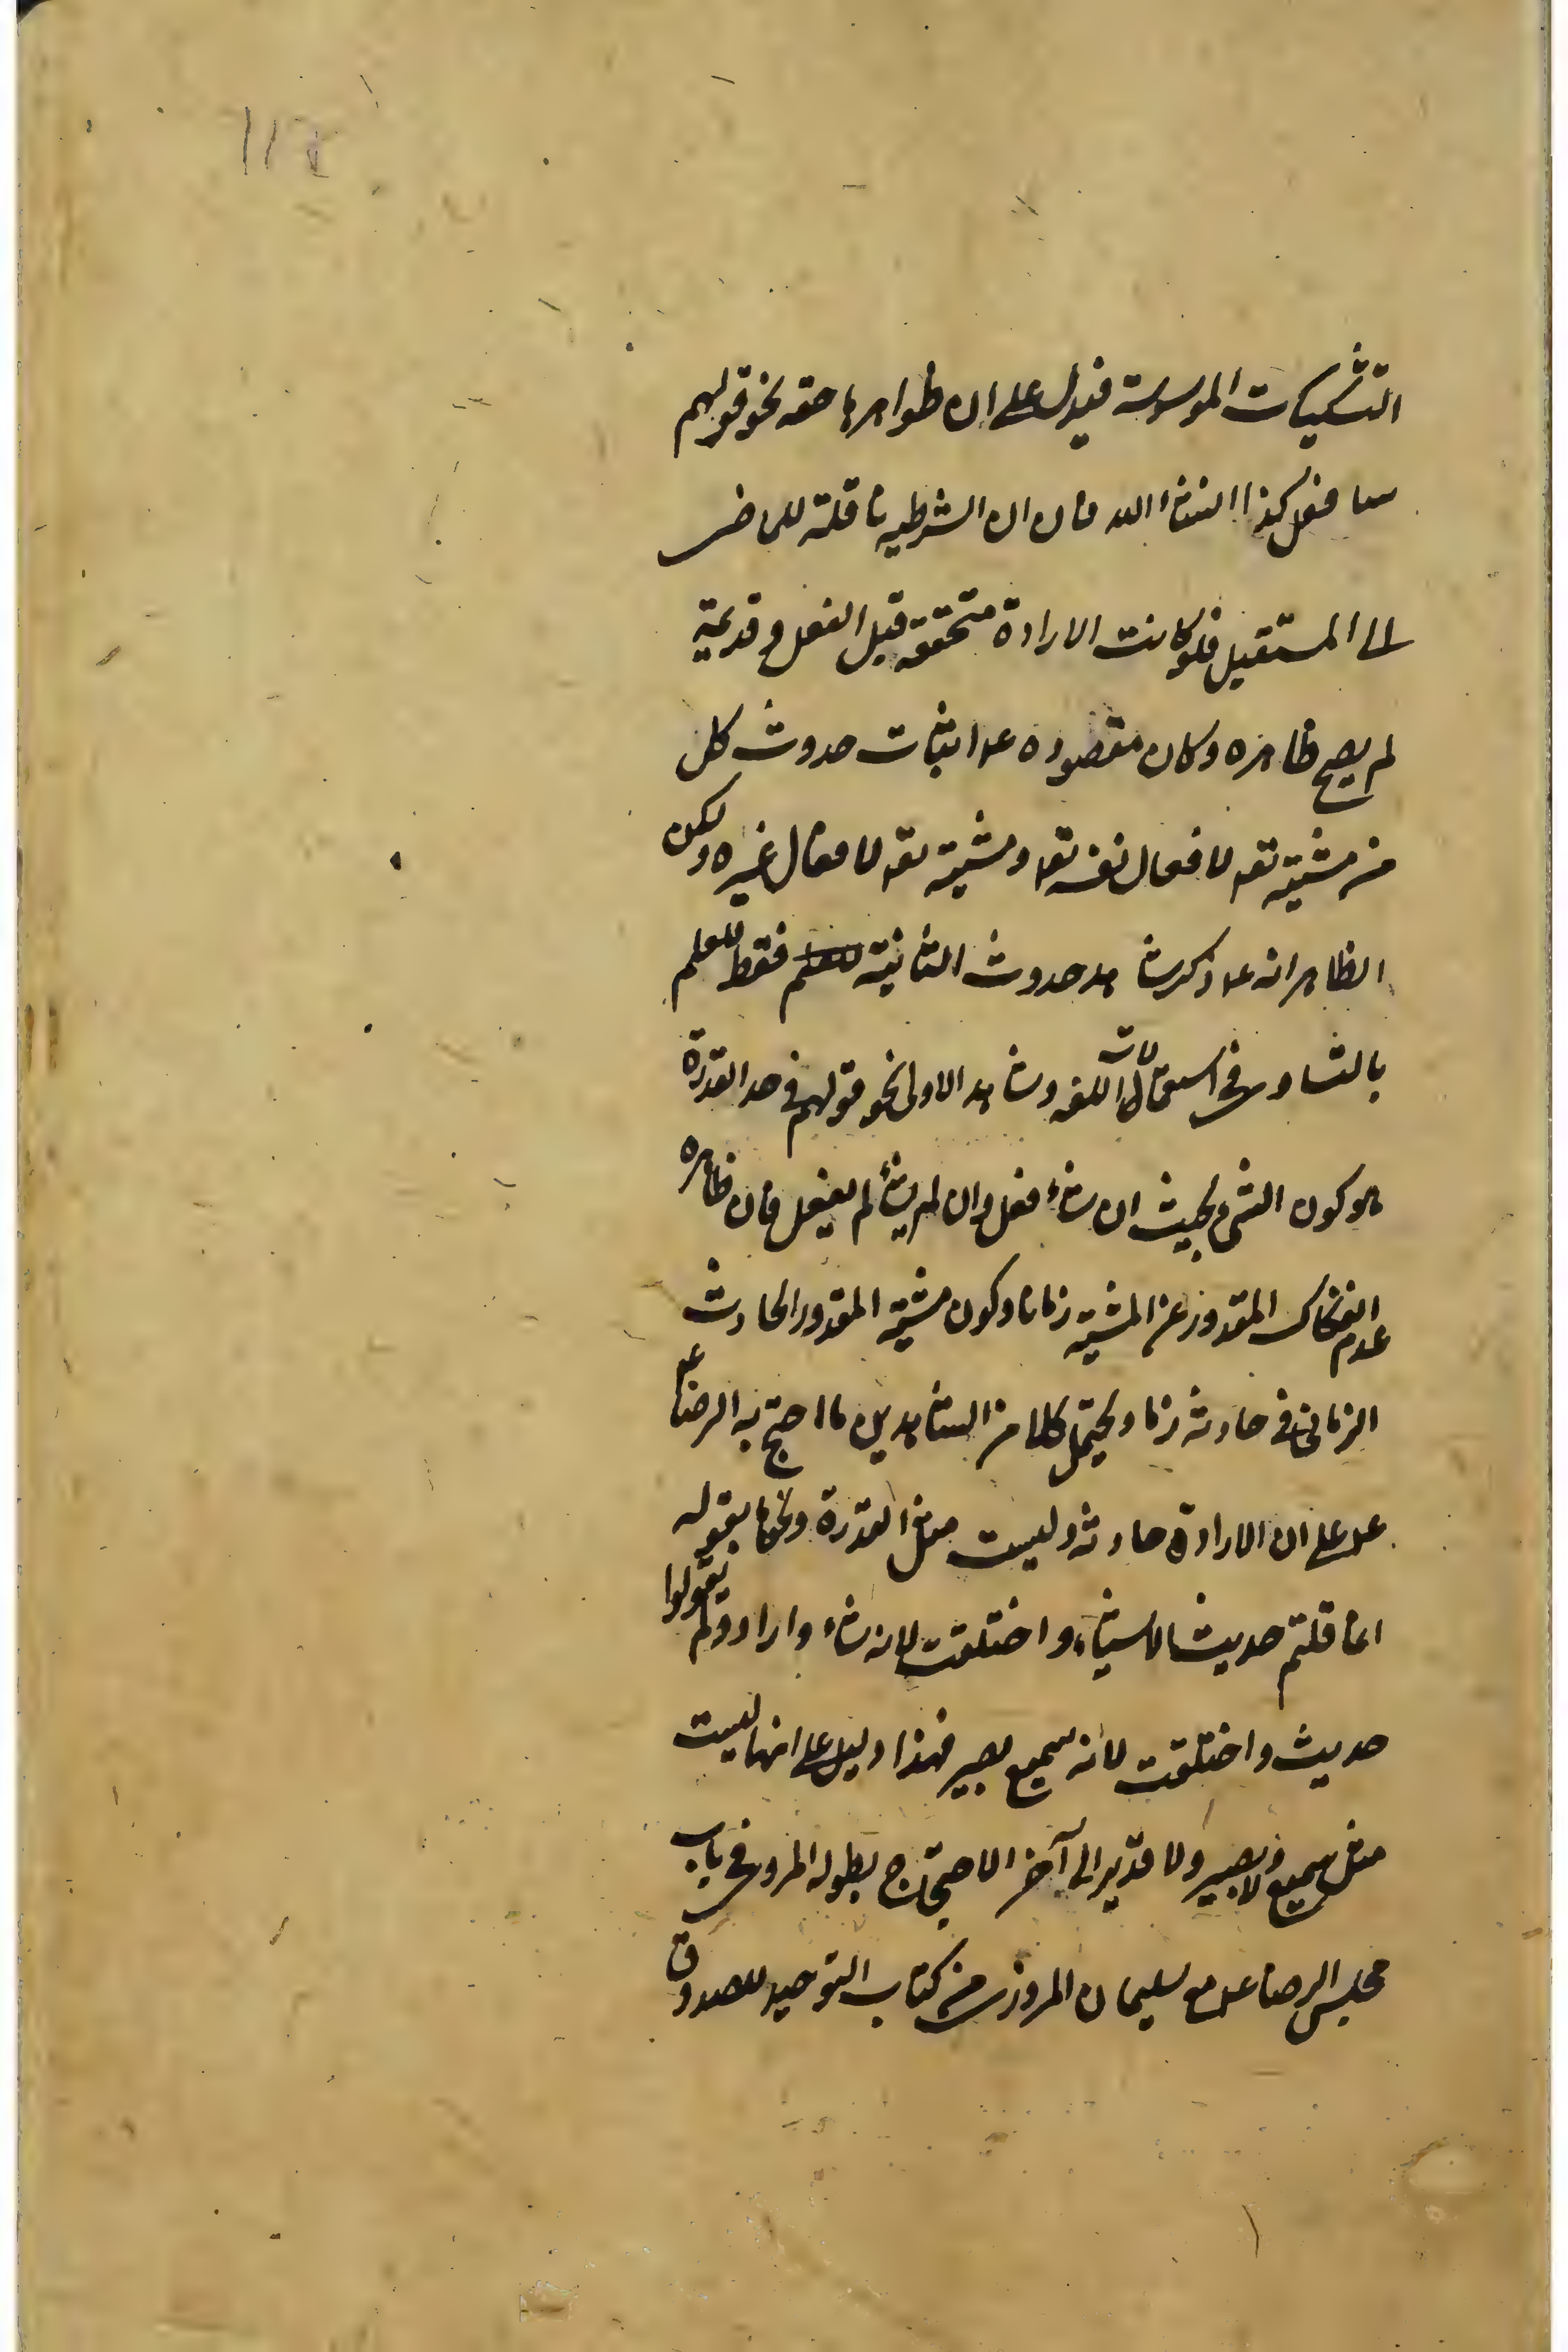 التشكيكات الموسوسة فيدل على ان ظواهرها حقه نحو قولهم
سافعل كذا انشاء الله فان ان الشرطيه ناقلة للماضى
الى المستقبل فلو كانت الارادة متحققه قبل الفعل وقديمة
لم يصح ظاهره وكان مقصوده عم اثبات حدوث كل
من مشيته تعم لافعال نفسه تعم ومشيته تعم لافعال غيره ولكن
الظاهر انه عم ذكر شاهد حدوث الثانية فقط للعلم
بالتساوى فى استعمالات اللغه وشاهد الاولى نحو قولهم فى حد القدرة
هو كون الشىء بحيث ان شاء فعل وان لم يشأ لم يفعل فان ظاهره
عدم انفكاك المقدور عن المشيه زمانا وكون مشية المقدور الحادث
الزمانى فى حادثه زمانا ويحتمل كلا من الشاهدين ما احتج به الرضا
عم على ان الارادة حادثه وليست مثل القدرة ونحوها بقوله
انما قلتم حدثت الاشياء واختلفت لانه شاء واراد ولم تقولوا
حدثت واختلفت لانه سميع بصير فهذا دليل على انها ليست
مثل سميع ولا بصير ولا قدير الى آخر الاحتجاج بطوله المروى فى باب
مجلس الرضا عم مع سليمان المروزى من كتاب التوحيد للصدوق